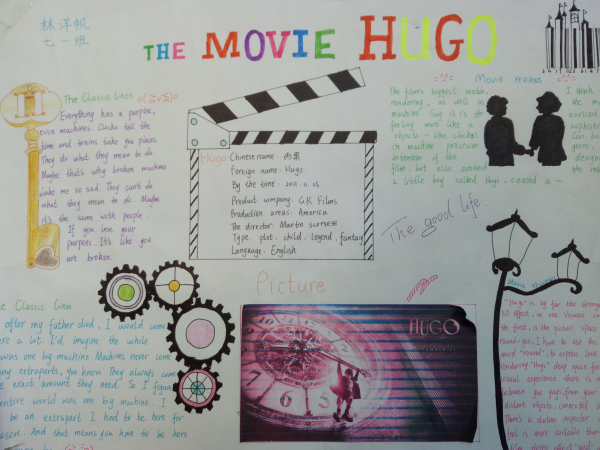 林洋帆
七一班
THE MOVIE HUGO
The Classic lines
Everything has a purpose,
even machines. Clocks tell the
time and trains take you places.
They do what they mean to do.
Maybe that's why broken machines
make me so sad. They can't do
what they mean to do. Maybe
it's the same with people.
If you lose your
purpose. It's like you
are broken.
Hugo
Chinese name: 雨果
Foreign name: Hugo
By the time: 2011. 11. 23.
Product company: GK Films
Production areas: America
The director: Martin scorsese
Type: plot. child. legend. fantasy
Language: English
Movie reviews
The film's biggest watch,
rendering, as well as
machine. Say it is the
feeling more like a
objects - like clocks
in machine precision
intention of the
film, but also around
a little boy called Hugo, caused a
I think
the mo
earliest
sophistic
Can be
years,
design
the ro
The good life.
Picture
HUGO
e Classic lines
after my father died, I would come
ere a lot. I'd imagine the whole
was one big machine. Machines never come
any extraparts, you know. They always come
exact amount they need. So I figure
entire world was one big machine. I
be an extrapart I had to be here for
reason. And that means you have to be here
Movie reviews
"Hugo" is by far the stronge
3D effect, no one. Viewers can
the first, is the picture space
round-gas, I have to use the
word "round", to express love
rendering "Hugo" deep space fo
visual experience there is no
between you guys, from your
distant objects, connected li
There's a statim inspector c
feel is more suitable than